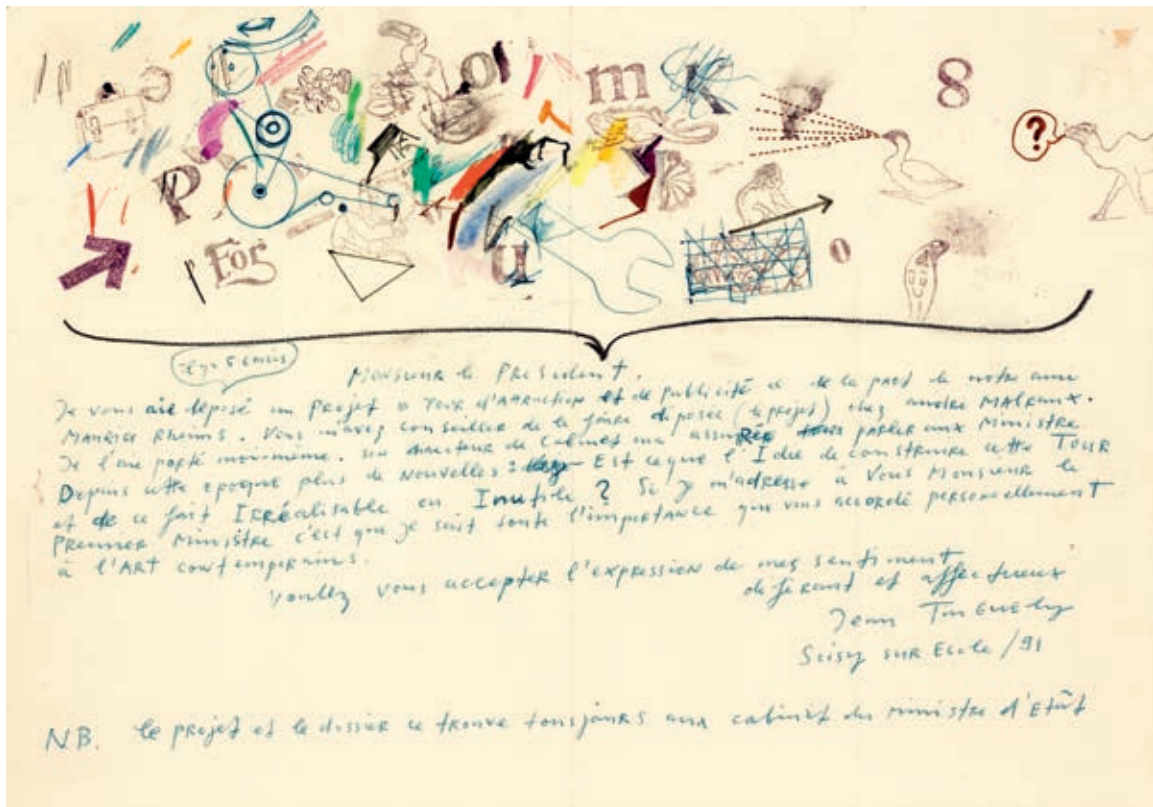 o m K P 8
?
P
For u o
il y a 5 mois
Monsieur le President.
Je vous aie deposé un Projet o Tour d'Attraction et de Publicité o de la part de notre ami
Maurice Rheims. Vous m'avez conseiller de la faire diposée (le projet) chez andre MALRAUX.
Je l'aie porté moi-meme. Son directeur de Cabinet m'a assurée parler aux Ministre
Depuis cette epoque plus de Nouvelles: Est ce que l'Idée de construire cette Tour
et de ce fait Irréalisable en Inutile? Si je m'adresse à Vous Monsieur le
Premier Ministre c'est que je sait toute l'importance que vous accordé personellement
à l'ART contemporains.
Voullez vous accepter l'expression de mes sentiment
deferant et affectueux
Jean Tinguely
Soisy sur Ecole /91
N.B. le projet et le dossier ce trouve tousjours aux cabinet du ministre d'Etât